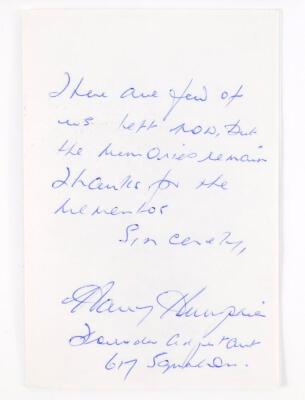 There are few of
us left now, but
the memories remain
Thanks for the
mementos
Sincerely,
Harry Humphries
Founder Adjutant
617 Squadron.